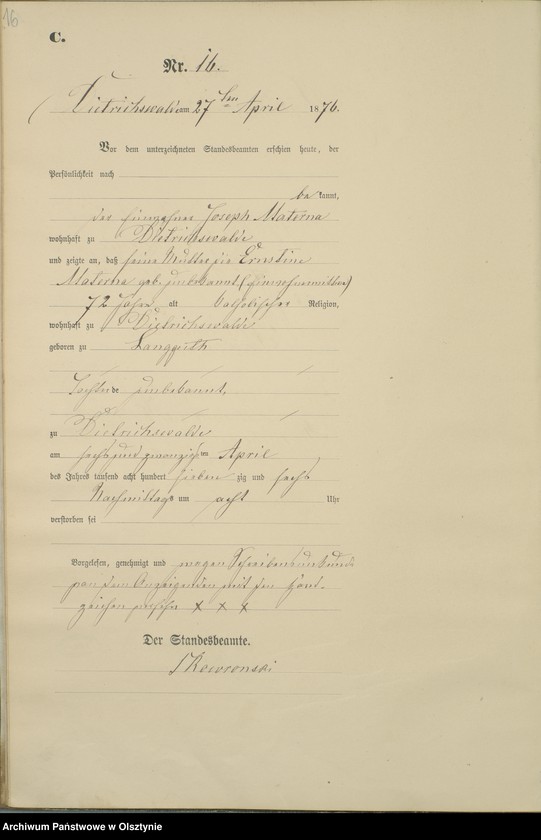 16
C.
Nr. 16.
Dietrichswalde am 27ten April 1876.
Vor dem unterzeichneten Standesbeamten erschien heute, der
Persönlichkeit nach
bekannt,
der Einwohner Joseph Materna
wohnhaft zu Dietrichswalde
und zeigte an, daß seine Mutter die Ernstine
Materna geb. unbekannt (Einwohnerwittwe)
72 Jahre alt katholischer Religion,
wohnhaft zu Dietrichswalde
geboren zu Langguth
Tochter de unbekannt,
zu Dietrichswalde
am sechs und zwanzigsten April
des Jahres tausend acht hundert sieben zig und sechs
Nachmittags um acht Uhr
verstorben sei
Vorgelesen, genehmigt und wegen Schreibensunkunde
von dem Anzeigenden mit den Hand-
zeichen versehn x x x
Der Standesbeamte.
Skowronski
Archiwum Państwowe w Olsztynie